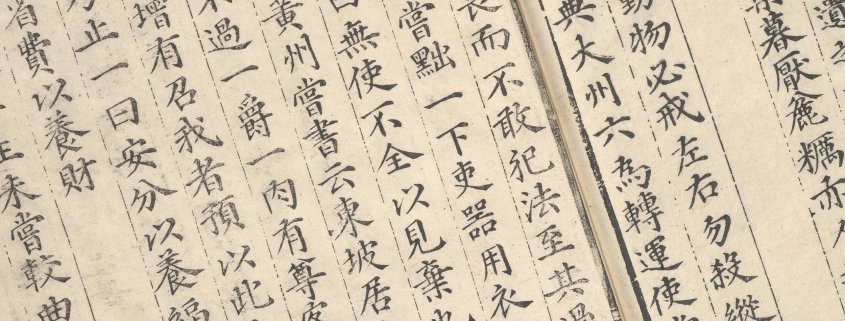 遺之
暮厭麄糲亦
動物必戒左右勿殺縱
典大州六為轉運使
而不敢犯法至其過
嘗黜一下吏器用衣
曰無使不全以見棄也
黃州嘗書云東坡居
不過一爵一肉有尊客
增有召我者預以此
止一曰安分以養福
省費以養財
未嘗較曲